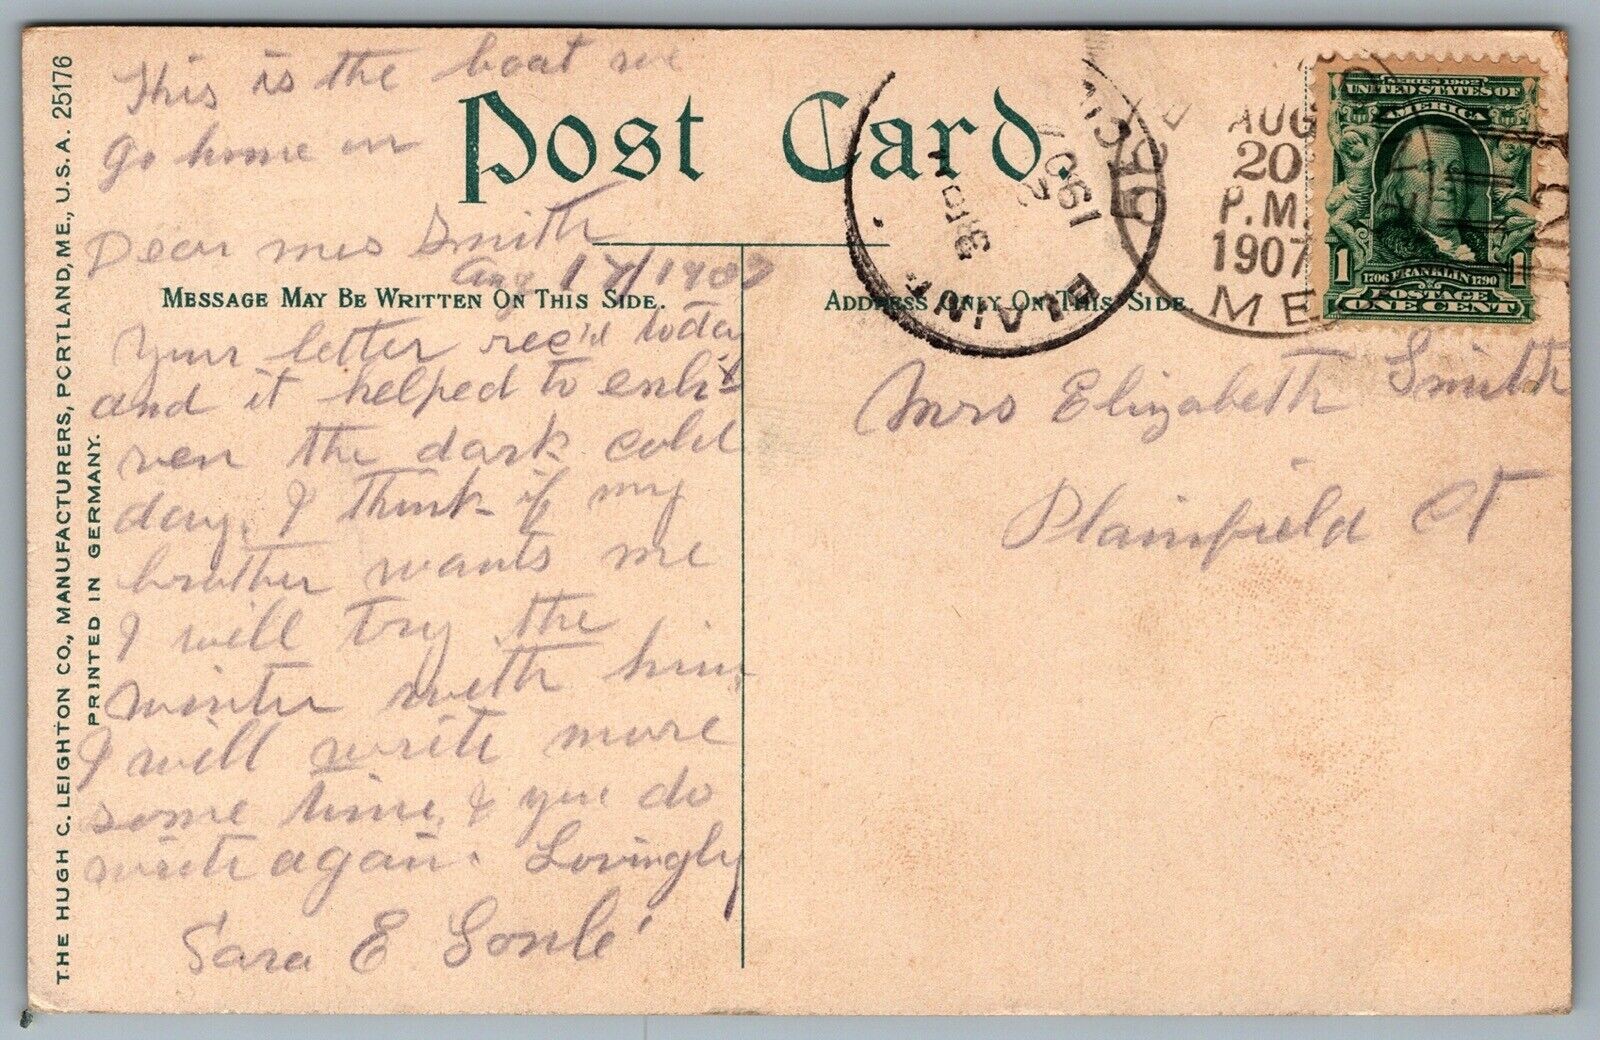 THE HUGH C. LEIGHTON CO., MANUFACTURERS, PORTLAND, ME., U.S.A. 25176
PRINTED IN GERMANY.
This is the boat we
go home on
Post Card.
Dear Mrs Smith
Aug 17/1907
MESSAGE MAY BE WRITTEN ON THIS SIDE.
Your letter rec'd today
and it helped to enli
ven the dark cold
day. I think if my
brother wants me
I will try the
winter with him
I will write more
some time, & you do
write again. Lovingly
Sara E Soulé
ADDRESS ONLY ON THIS SIDE.
PLAINF
1907
AUG
20
P.M.
1907
ME
SERIES 1902
UNITED STATES OF
AMERICA
1 1706 FRANKLIN 1790 1
POSTAGE
ONE CENT
Mrs Elizabeth Smith
Plainfield Ct